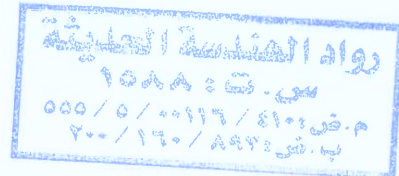 رواد الهندسة الحديثة
س.ت: ١٥٨٨
م.ض: ٤١٠/٠٠١١٦/٥/٥٥٥
ب.ض: ٨٩٢/١٦٠/٢٠٠